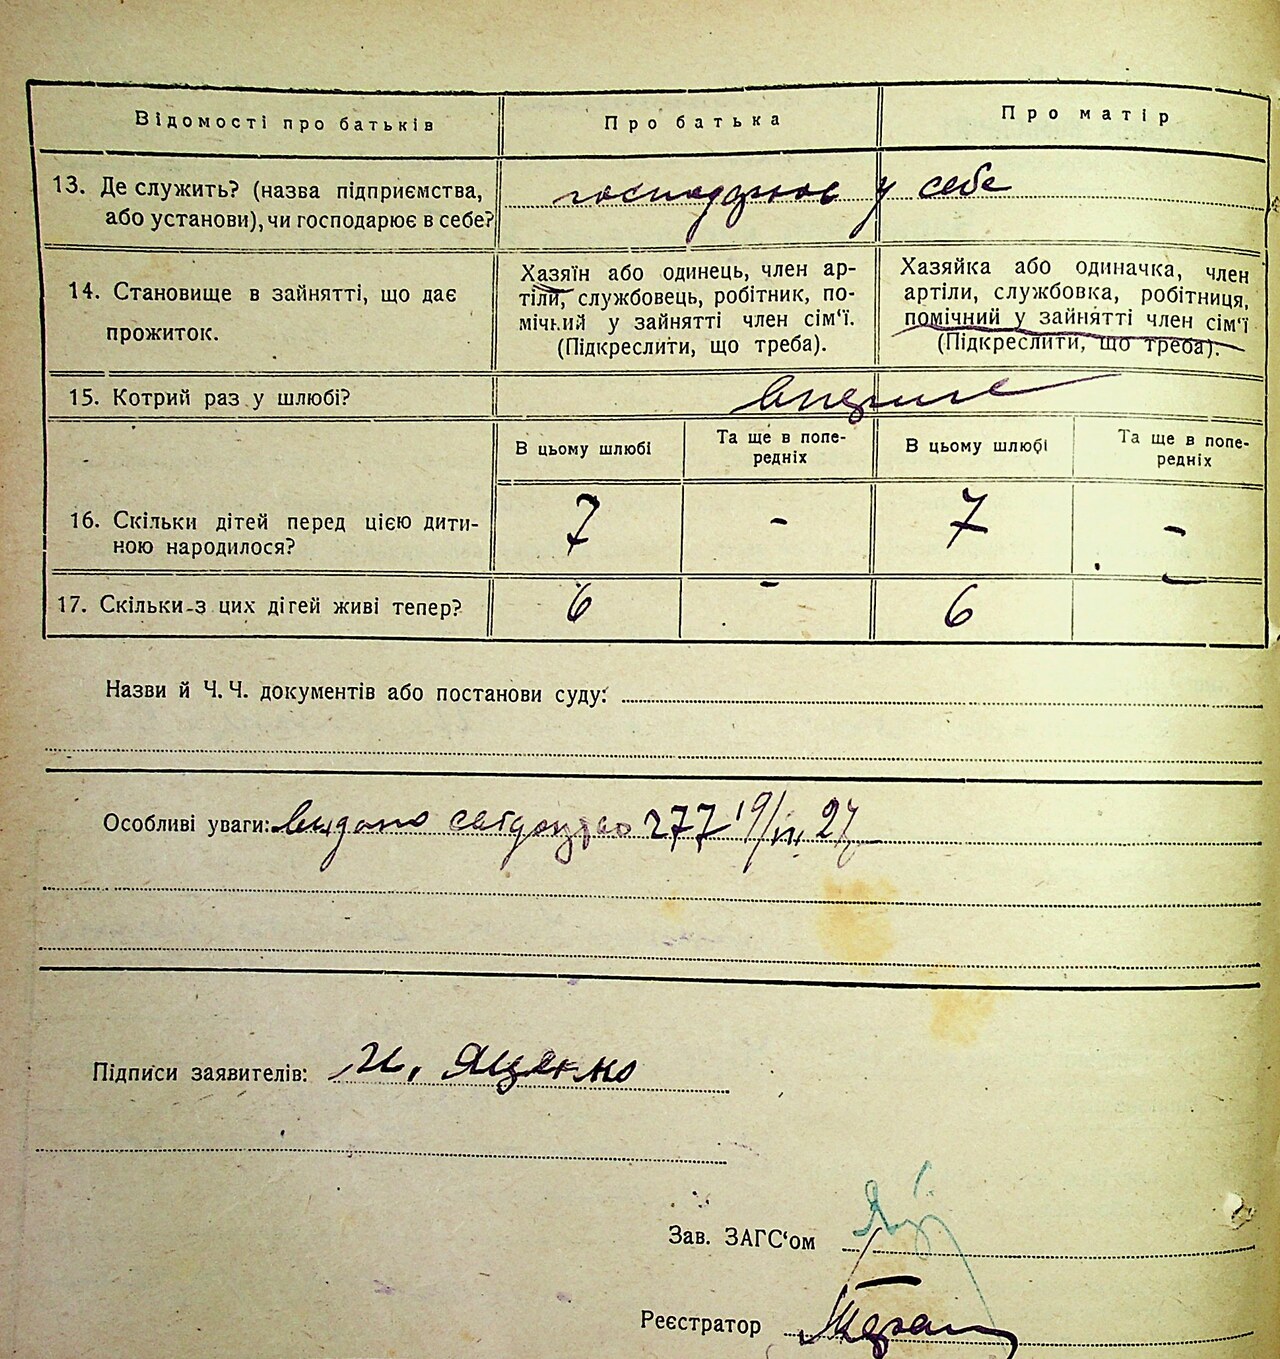 Відомості про батьків
Про батька
Про матір
13. Де служить? (назва підприємства,
або установи), чи господарює в себе?
господарює у себе
14. Становище в зайнятті, що дає
прожиток.
Хазяїн або одинець, член ар-
тіли, службовець, робітник, по-
мічний у зайнятті член сім'ї.
(Підкреслити, що треба).
Хазяйка або одиначка, член
артіли, службовка, робітниця,
помічний у зайнятті член сім'ї
(Підкреслити, що треба).
15. Котрий раз у шлюбі?
вперше
В цьому шлюбі
Та ще в попе-
редніх
В цьому шлюбі
Та ще в попе-
редніх
16. Скільки дітей перед цією дити-
ною народилося?
7 - 7 -
17. Скільки-з цих дігей живі тепер?
6 - 6 -
Назви й Ч. Ч. документів або постанови суду:
Особливі уваги: видано 277 19/ 27
Підписи заявителів: И. Ященко
Зав. ЗАГС'ом
Реєстратор